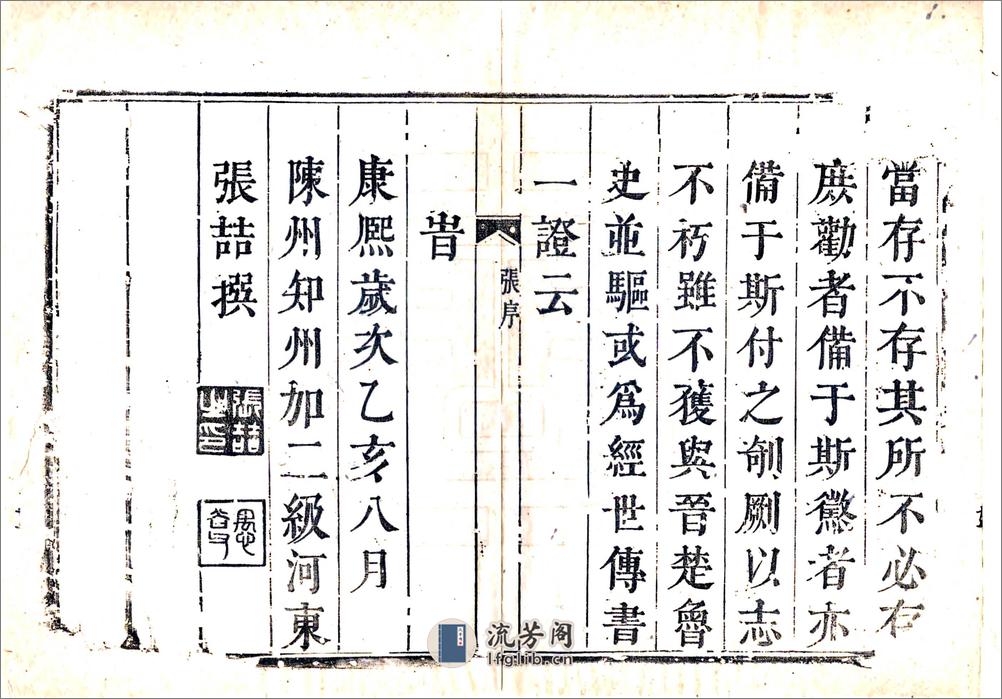 當存不存其所不必存
庻勸者備于斯懲者亦
備于斯付之剞劂以志
不朽雖不獲與晉楚魯
史並驅或爲經世傳書
一證云
張序
旹
康熙歲次乙亥八月
陳州知州加二級河東
張喆撰
張喆之印
流芳阁
lfglib.cn